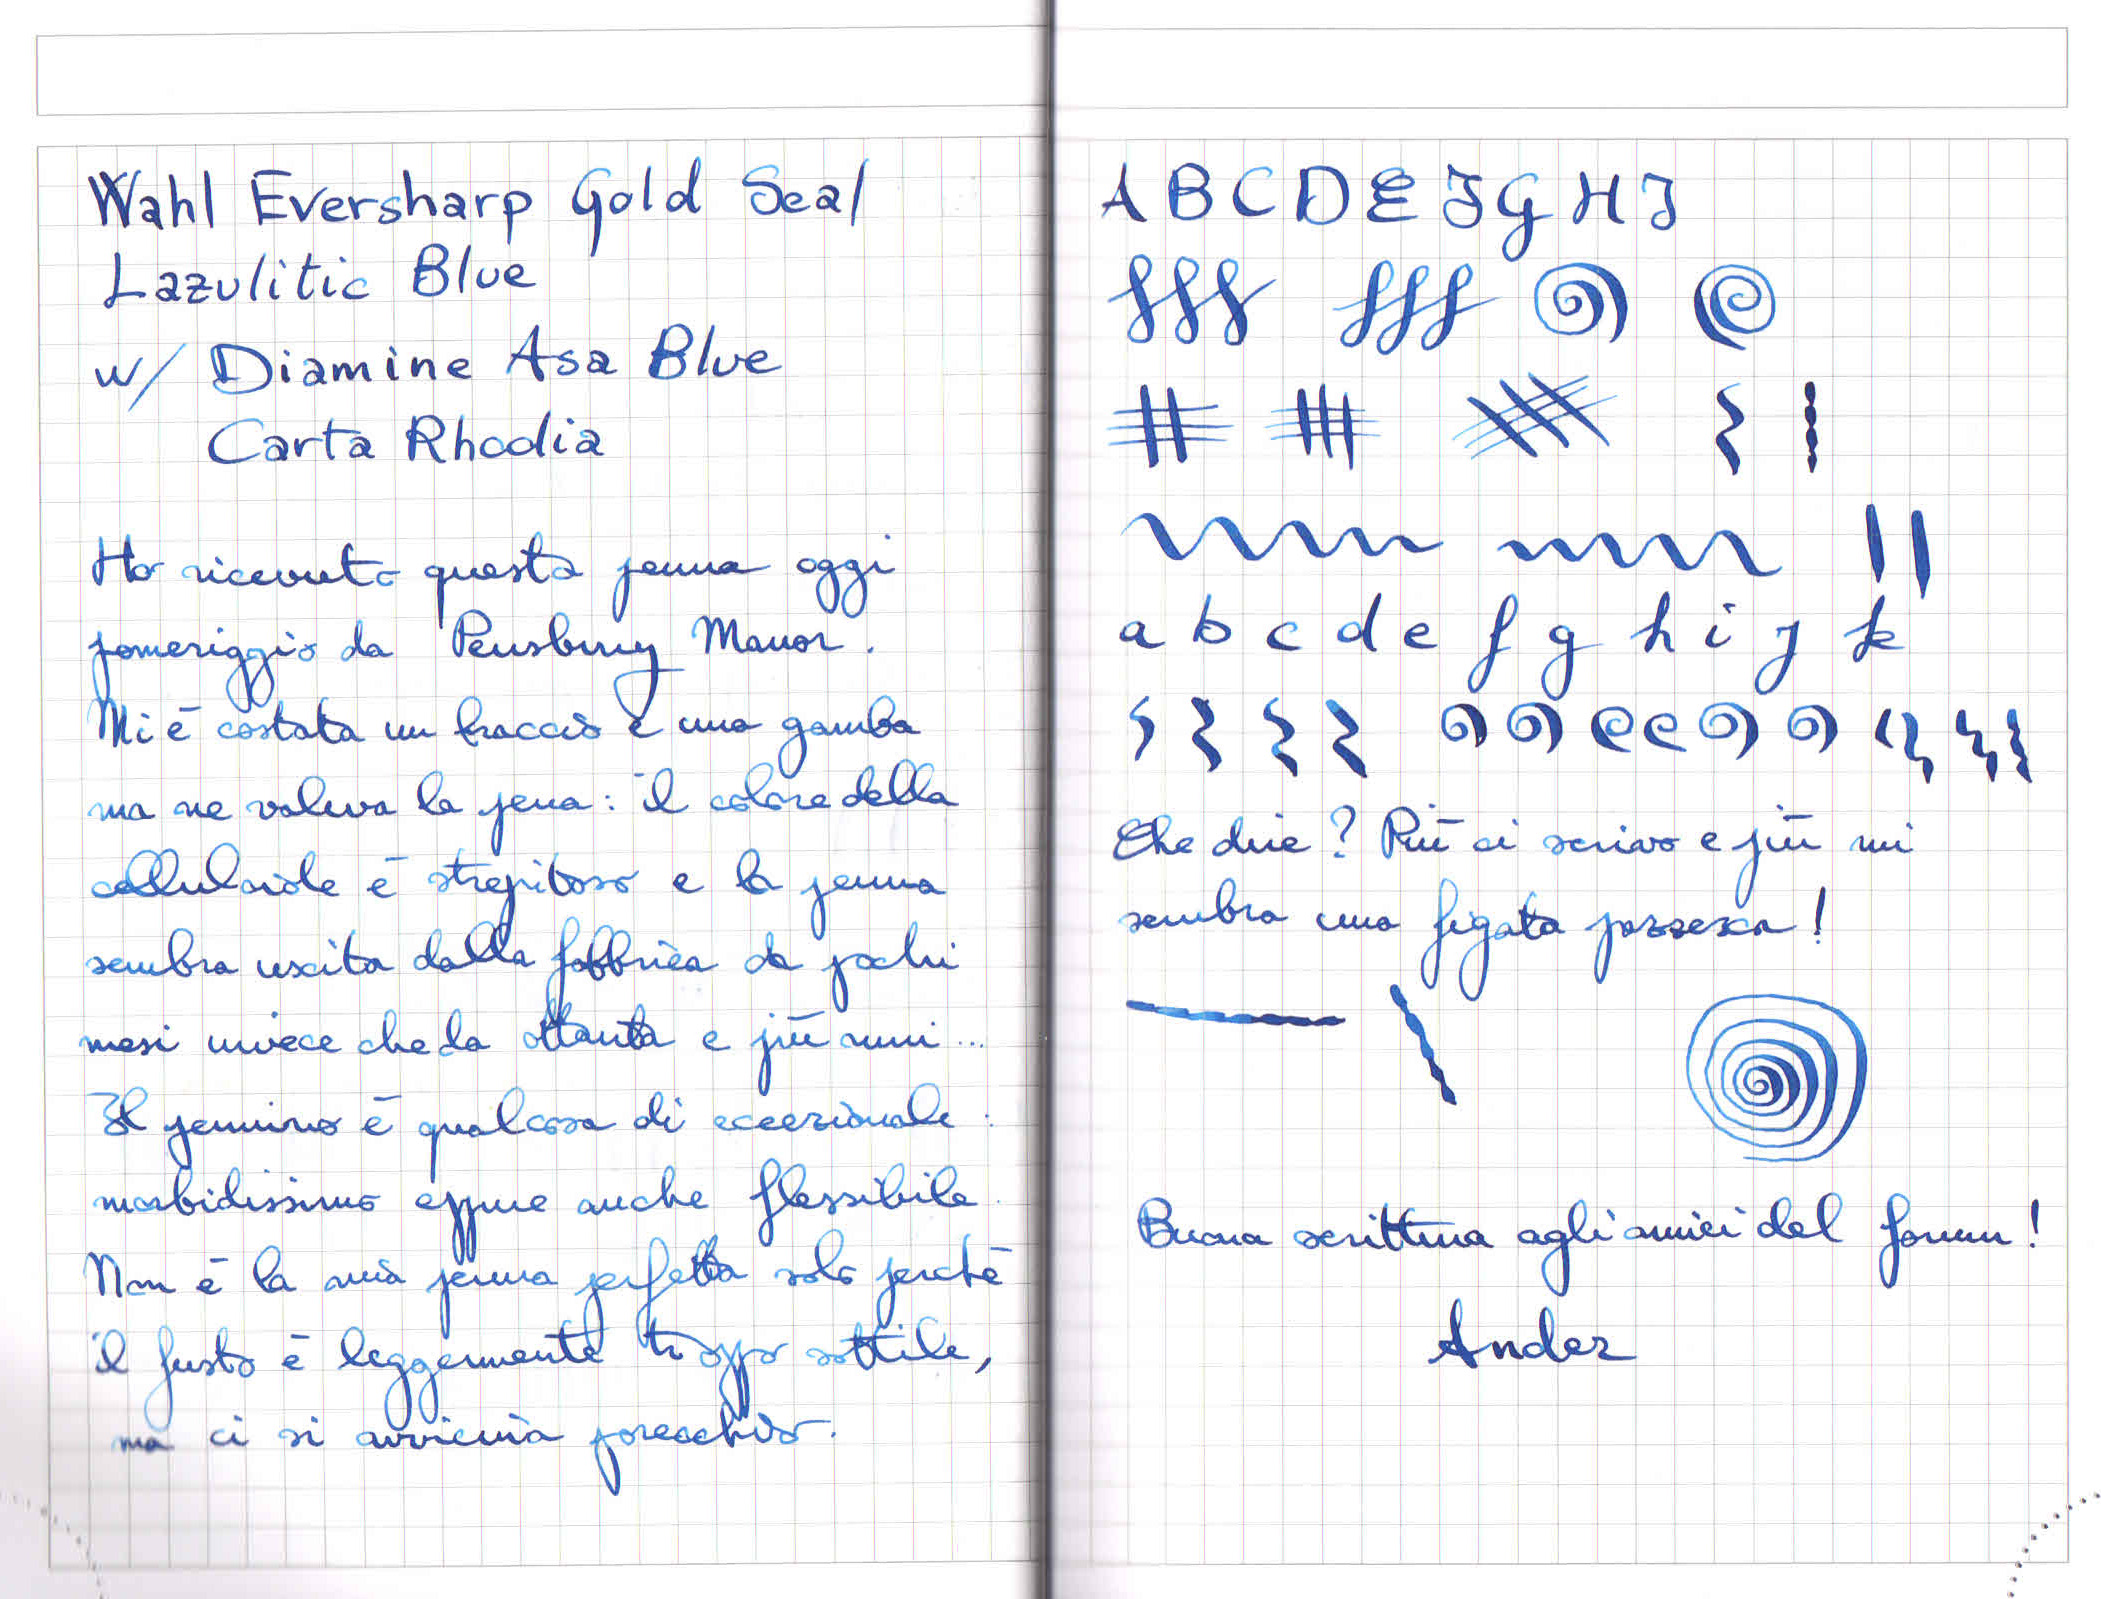 Wahl Eversharp Gold Seal
Lazulitic Blue
w/ Diamine Asa Blue
Carta Rhodia
Ho ricevuto questa penna oggi
pomeriggio da Pensbury Manor.
Mi è costata un braccio e una gamba
ma ne valeva la pena: il colore della
celluloide è strepitoso e la penna
sembra uscita dalla fabbrica da pochi
mesi invece che da ottanta e più anni...
Il pennino è qualcosa di eccezionale:
morbidissimo eppure anche flessibile.
Non è la mia penna perfetta solo perché
il fusto è leggermente troppo sottile,
ma ci si avvicina parecchio.
A B C D E F G H I
fff fff
a b c d e f g h i j k
Che dire? Più ci scrivo e più mi
sembra una figata pazzesca!
Buona scrittura agli amici del forum!
Ander